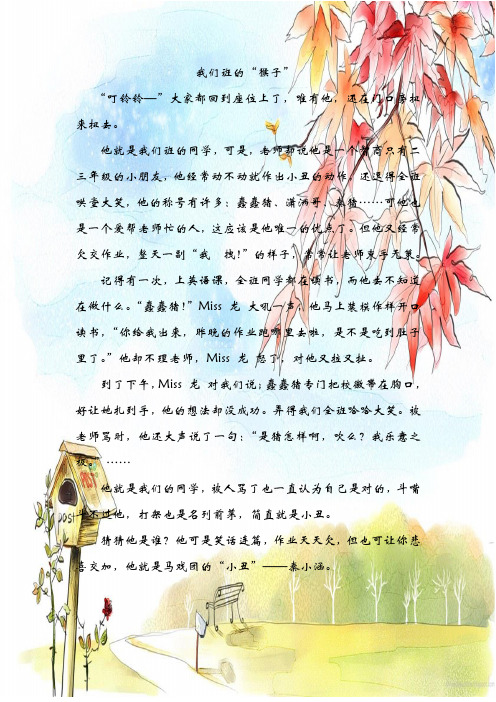 我们班的“猴子”
“叮铃铃—”大家都回到座位上了，唯有他，还在门口旁扭
来扭去。
他就是我们班的同学，可是，老师却说他是一个智商只有二
三年级的小朋友，他经常动不动就作出小丑的动作，还逗得全班
哄堂大笑，他的称号有许多：蠢蠢猪、潇洒哥、 猪……可他也
是一个爱帮老师忙的人，这应该是他唯一的优点了。但他又经常
欠交作业，整天一副“我 拽！”的样子，常常让老师束手无策。
记得有一次，上英语课，全班同学都在读书，而他却不知道
在做什么。“蠢蠢猪！”Miss 龙 大吼一声，他马上装模作样开口
读书，“你给我出来，昨晚的作业跑哪里去啦，是不是吃到肚子
里了。”他却不理老师，Miss 龙 怒了，对他又拉又扯。
到了下午，Miss 龙 对我们说：蠢蠢猪专门把校徽带在胸口，
好让她扎到手，他的想法却没成功。弄得我们全班哈哈大笑。被
老师骂时，他还大声说了一句：“是猪怎样啊，吹么？我乐意之
极。”……
他就是我们的同学，被人骂了也一直认为自己是对的，斗嘴
斗不过他，打架也是名列前茅，简直就是小丑。
猜猜他是谁？他可是笑话连篇，作业天天欠，但也可让你悲
喜交加，他就是马戏团的“小丑”——秦小涵。
POST
POST